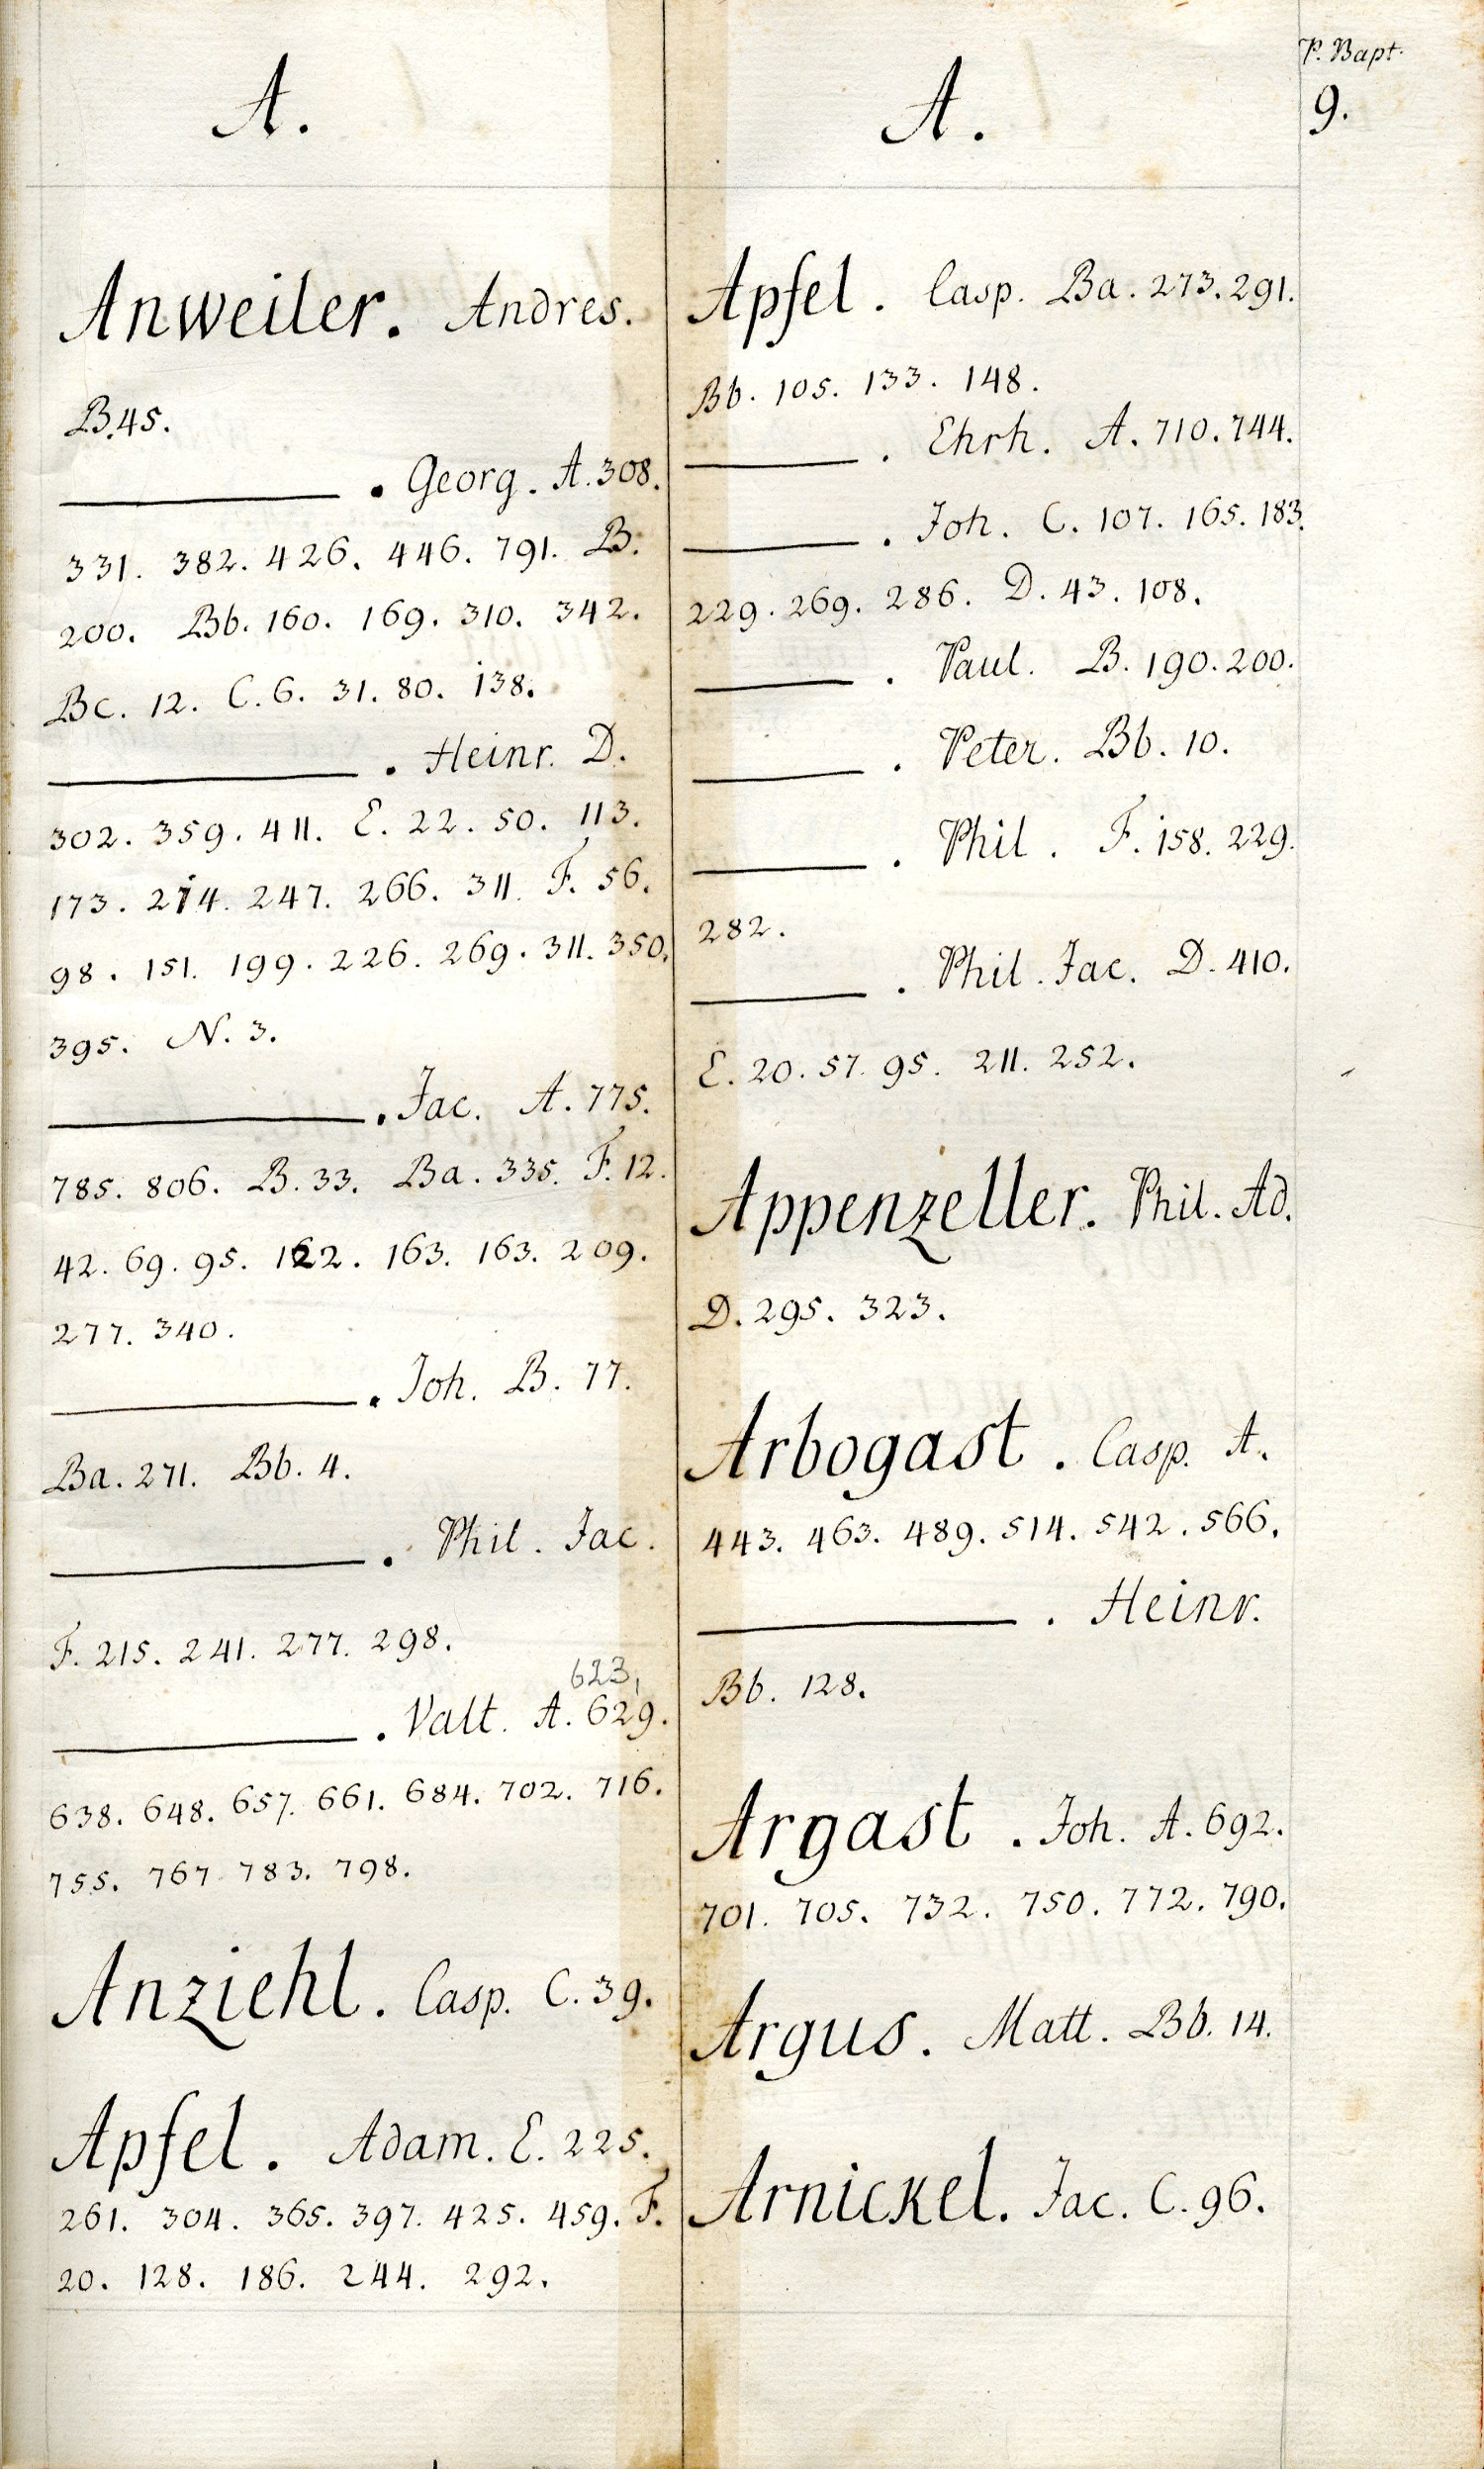 P. Bapt.
9.
A.
Anweiler. Andres.
B.45.
———. Georg. A. 308.
331. 382. 426. 446. 791. B.
200. Bb. 160. 169. 310. 342.
Bc. 12. C. 6. 31. 80. 138.
———. Heinr. D.
302. 359. 411. E. 22. 50. 113.
173. 214. 247. 266. 311. F. 56.
98. 151. 199. 226. 269. 311. 350.
395. N. 3.
———. Jac. A. 775.
785. 806. B. 33. Ba. 335. F. 12.
42. 69. 95. 122. 163. 163. 209.
277. 340.
———. Joh. B. 77.
Ba. 271. Bb. 4.
———. Phil. Jac.
F. 215. 241. 277. 298.
623,
———. Valt. A. 629.
638. 648. 657. 661. 684. 702. 716.
755. 767. 783. 798.
Anziehl. Casp. C. 39.
Apfel. Adam. E. 225.
261. 304. 365. 397. 425. 459. F.
20. 128. 186. 244. 292.
A.
Apfel. Casp. Ba. 273. 291.
Bb. 105. 133. 148.
———. Ehrh. A. 710. 744.
———. Joh. C. 107. 165. 183.
229. 269. 286. D. 43. 108.
———. Paul. B. 190. 200.
———. Peter. Bb. 10.
———. Phil. F. 158. 229.
282.
———. Phil. Jac. D. 410.
E. 20. 57. 95. 211. 252.
Appenzeller. Phil. Ad.
D. 295. 323.
Arbogast. Casp. A.
443. 463. 489. 514. 542. 566.
———. Heinr.
Bb. 128.
Argast. Joh. A. 692.
701. 705. 732. 750. 772. 790.
Argus. Matt. Bb. 14.
Arnickel. Jac. C. 96.